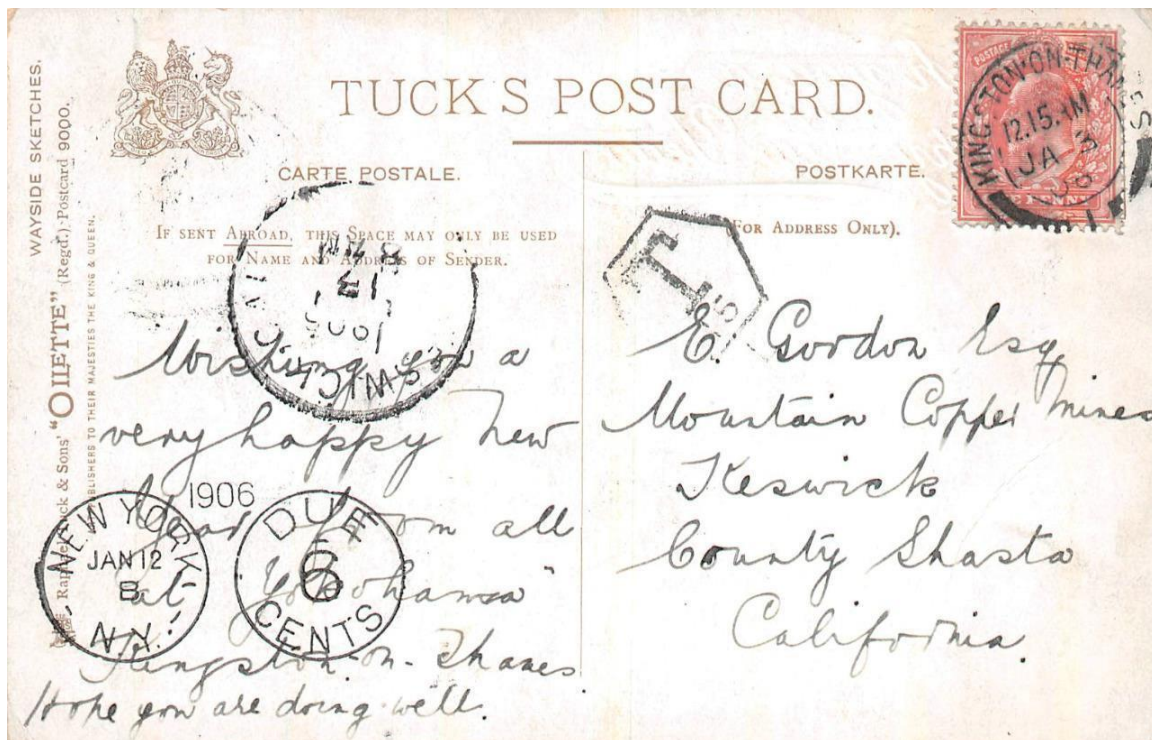 WAYSIDE SKETCHES.
Raphael Tuck & Sons' "OILETTE" (Regd.) Postcard 9090.
PUBLISHERS TO THEIR MAJESTIES THE KING & QUEEN.
TUCK'S POST CARD.
CARTE POSTALE.
IF SENT ABROAD, THIS SPACE MAY ONLY BE USED
FOR NAME AND ADDRESS OF SENDER.
POSTKARTE.
(FOR ADDRESS ONLY).
KINGSTON-ON-THAMES
12.15.AM
JA 3
06
1
PENNY
T
KESWICK CAL
8 AM
1906
Wishing you a
very happy New
Year from all
at "Yokohama"
Kingston-on-Thames
Hope you are doing well.
1906
NEW YORK
JAN 12
N.Y.
DUE
6
CENTS
E. Gordon Esq
Mountain Copper Mines
Keswick
County Shasta
California.